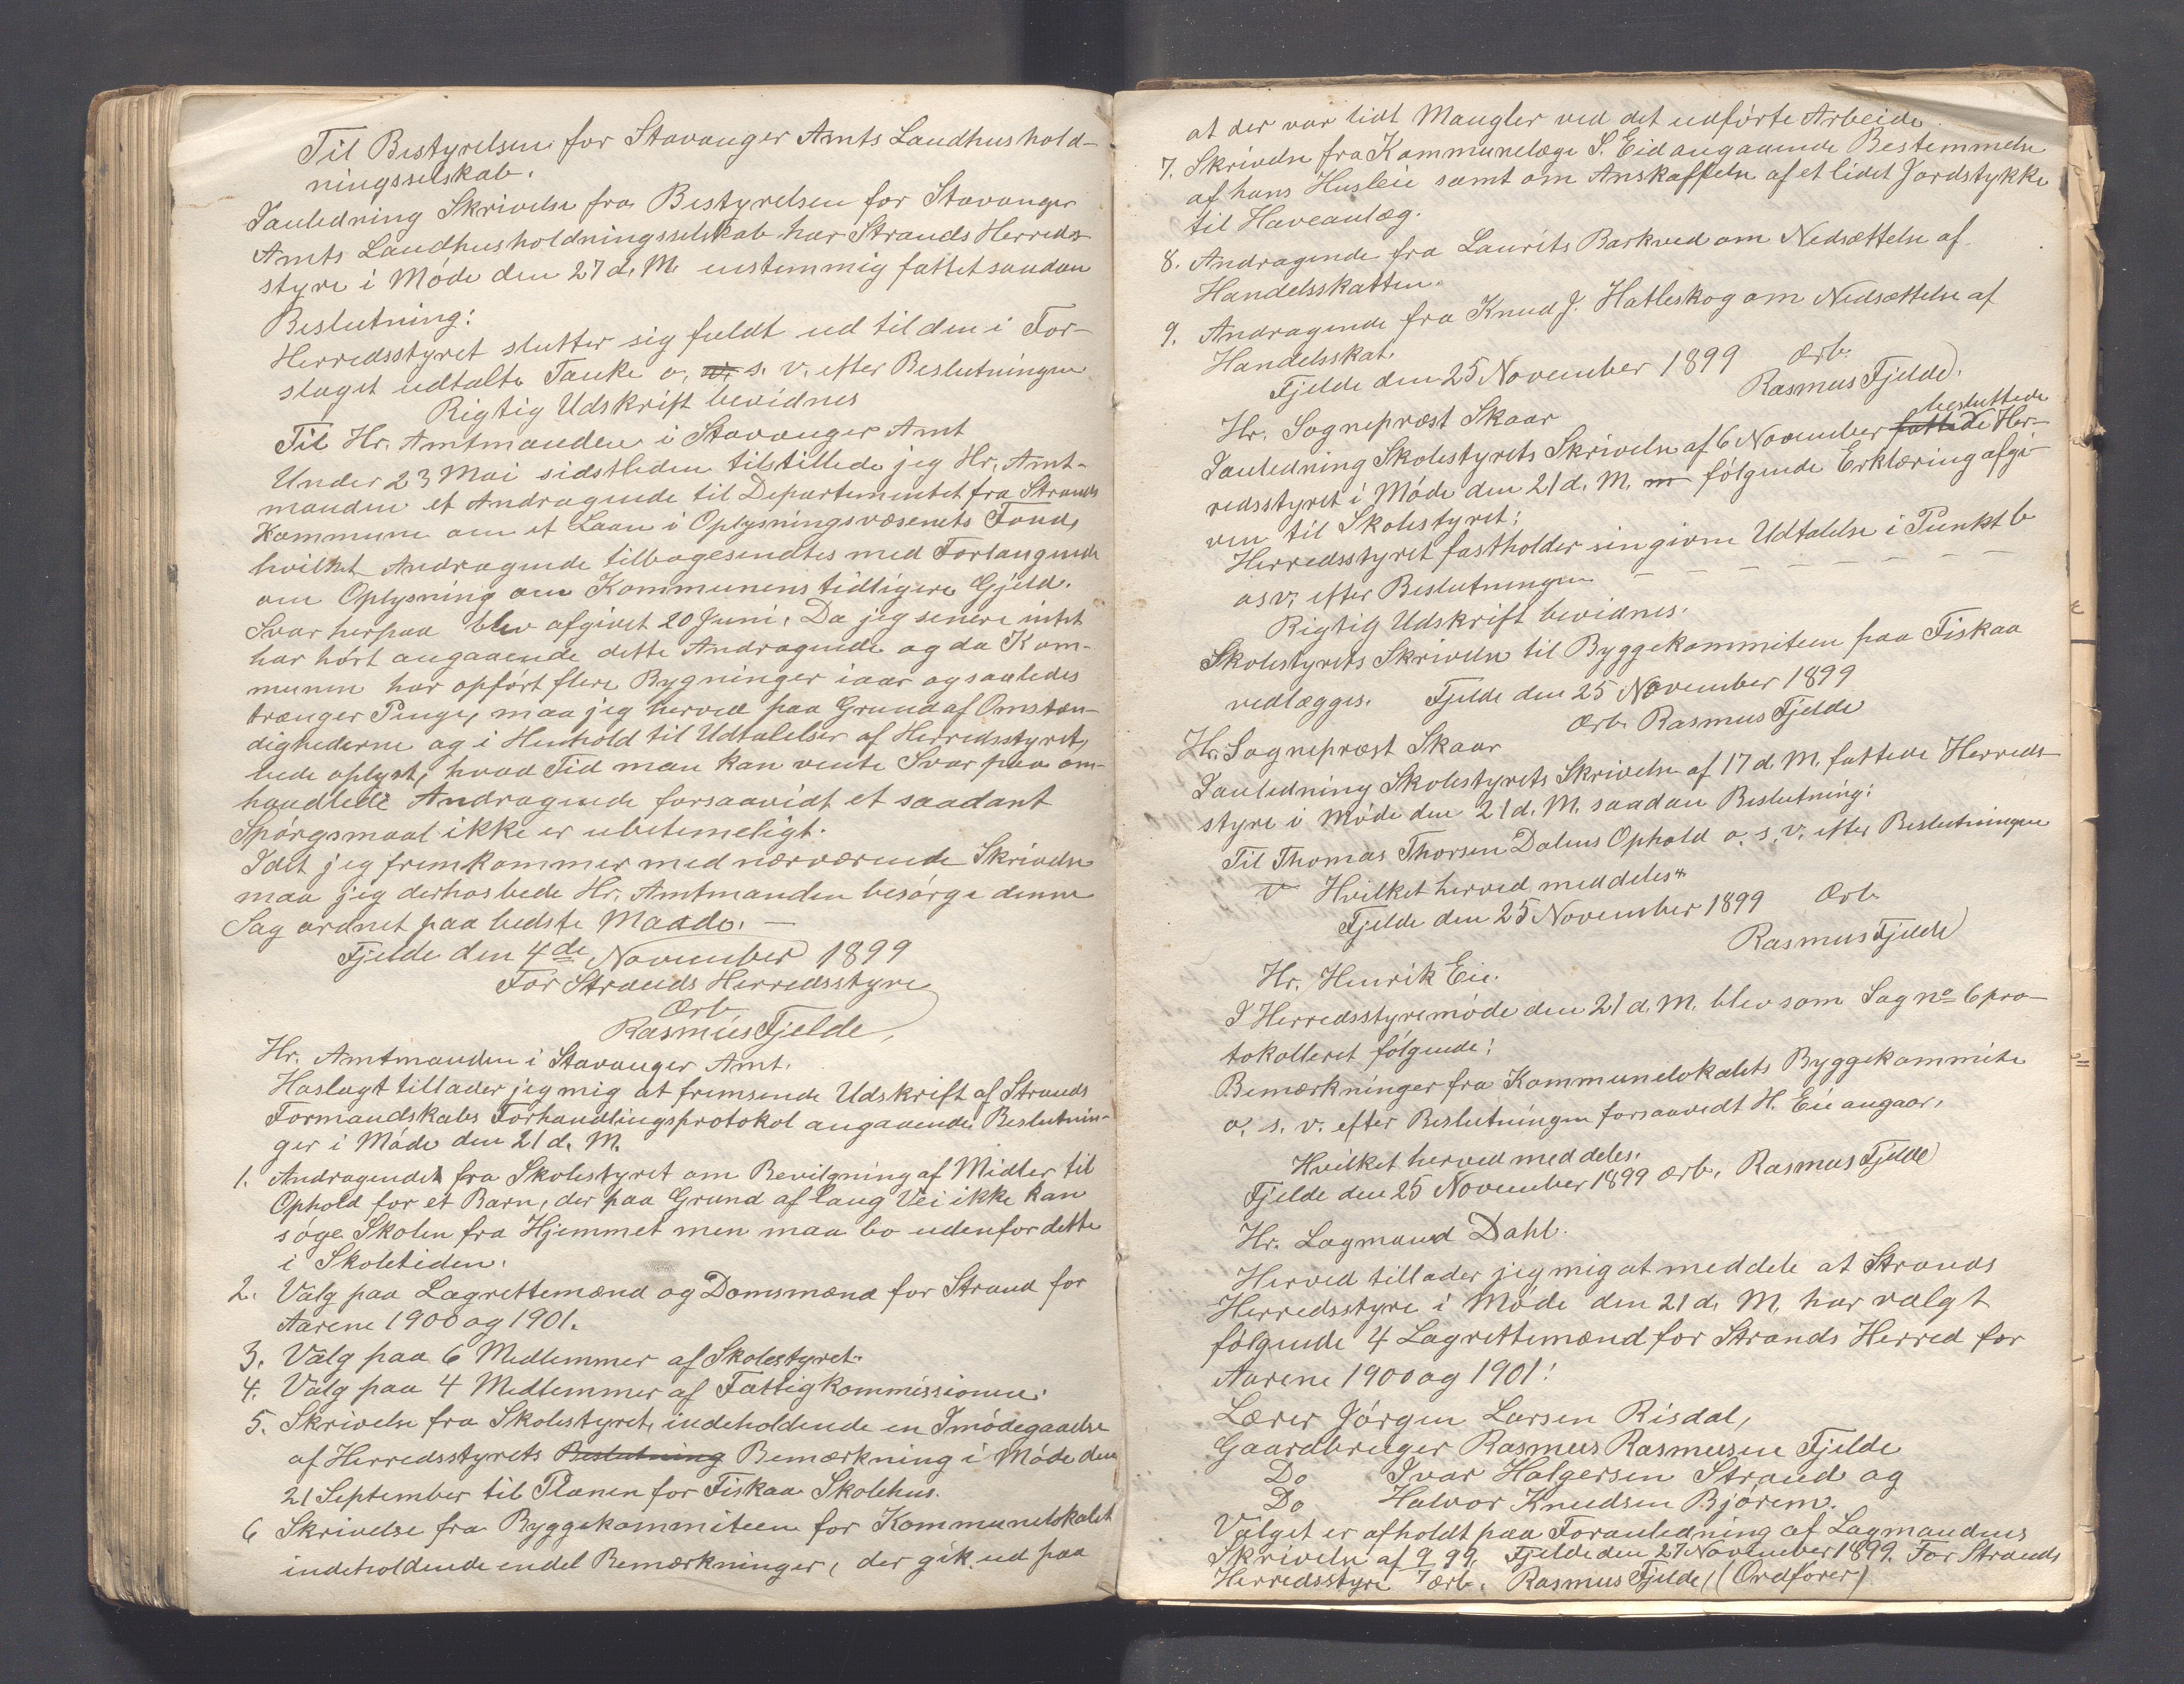 Til Bestyrelsen for Stavanger Amts Landhushold-
ningsselskab.
Ianledning Skrivelse fra Bestyrelsen for Stavanger
Amts Landhusholdningsselskab har Strands Herreds-
styre i Møde den 27 d. M. enstemmig fattet saadan
Beslutning:
Herredsstyret slutter sig fuldt ud til den i For-
slaget udtalte Tanke o. s. v. efter Beslutningen
Rigtig Udskrift bevidnes
Til Hr. Amtmanden i Stavanger Amt
Under 23 Mai sidstleden tilstillede jeg Hr. Amt-
manden et Andragende til Departementet fra Strands
Kommune om et Laan i Oplysningsvæsenets Fond,
hvilket Andragende tilbagesendtes med Forlangende
om Oplysning om Kommunens tidligere Gjeld.
Svar herpaa blev afgivet 20 Juni. Da jeg senere intet
har hørt angaaende dette Andragende og da Kom-
munen har opført flere Bygninger iaar og saaledes
trænger Penge, maa jeg herved paa Grund af Omstæn-
dighederne og i Henhold til Udtalelser af Herredsstyret,
bede oplyst, hvad Tid man kan vente Svar paa om-
handlede Andragende forsaavidt et saadant
Spørgsmaal ikke er ubetimeligt.
Idet jeg fremkommer med nærværende Skrivelse
maa jeg derhos bede Hr. Amtmanden besørge denne
Sag ordnet paa bedste Maade. —
Fjelde den 4de November 1899
For Strands Herredsstyre
Ærb
Rasmus Fjelde,
Hr. Amtmanden i Stavanger Amt.
Hoslagt tillader jeg mig at fremsende Udskrift af Strands
Formandskabs Forhandlingsprotokol angaaende Beslutnin-
ger i Møde den 21 d. M.
1. Andragende fra Skolestyret om Bevilgning af Midler til
Ophold for et Barn, der paa Grund af lang Vei ikke kan
søge Skolen fra Hjemmet men maa bo udenfor dette
i Skoletiden.
2. Valg paa Lagrettemænd og Domsmænd for Strand for
Aarene 1900 og 1901.
3. Valg paa 6 Medlemmer af Skolestyret.
4. Valg paa 4 Medlemmer af Fattigkommissionen.
5. Skrivelse fra Skolestyret, indeholdende en Imødegaaelse
af Herredsstyrets Beslutning Bemærkning i Møde den
21 September til Planen for Fiskaa Skolehus.
6 Skrivelse fra Byggekommiteen for Kommunelokalet
indeholdende endel Bemærkninger, der gik ud paa
at der var lidt Mangler ved det udførte Arbeide.
7. Skrivelse fra Kommunelæge S. Eid angaaende Bestemmelse
af hans Husleie samt om Anskaffelse af et lidet Jordstykke
til Haveanlæg.
8. Andragende fra Laurits Barkved om Nedsættelse af
Handelsskatten.
9. Andragende fra Knud J. Hatleskog om Nedsættelse af
Handelsskat.
Fjelde den 25 November 1899 Ærb.
Rasmus Fjelde.
Hr. Sognepræst Skaar
besluttede
Ianledning Skolestyrets Skrivelse af 6 November fattede Her-
redsstyret i Møde den 21 d. M. følgende Erklæring afgi-
ven til Skolestyret:
Herredsstyret fastholder sin givne Udtalelse i Punkt b
osv. efter Beslutningen — — — — — —
Rigtig Udskrift bevidnes.
Skolestyrets Skrivelse til Byggekommiteen paa Fiskaa
vedlægges. Fjelde den 25 November 1899
Ærb. Rasmus Fjelde
Hr. Sognepræst Skaar
Ianledning Skolestyrets Skrivelse af 17 d. M. fattede Herreds-
styre i Møde den 21 d. M. saadan Beslutning:
Til Thomas Thorsen Dalens Ophold o. s. v. efter Beslutningen
Hvilket herved meddeles
Fjelde den 25 November 1899 Ærb
Rasmus Fjelde
Hr. Henrik Eie.
I Herredsstyremøde den 21 d. M. blev som Sag no 6 pro-
tokolleret følgende:
Bemærkninger fra Kommunelokalets Byggekommite
o. s. v. efter Beslutningen forsaavidt H. Eie angaar.
Hvilket herved meddeles.
Fjelde den 25 November 1899 Ærb. Rasmus Fjelde
Hr. Lagmand Dahl.
Herved tillader jeg mig at meddele at Strands
Herredsstyre i Møde den 21 d. M. har valgt
følgende 4 Lagrettemænd for Strands Herred for
Aarene 1900 og 1901:
Lærer Jørgen Larsen Risdal,
Gaardbruger Rasmus Rasmussen Fjelde
Do Ivar Holgersen Strand og
Do Halvor Knudsen Bjørem.
Valget er afholdt paa Foranledning af Lagmandens
Skrivelse af 9 99. Fjelde den 27 November 1899. For Strands
Herredsstyre Ærb. Rasmus Fjelde, (Ordfører)